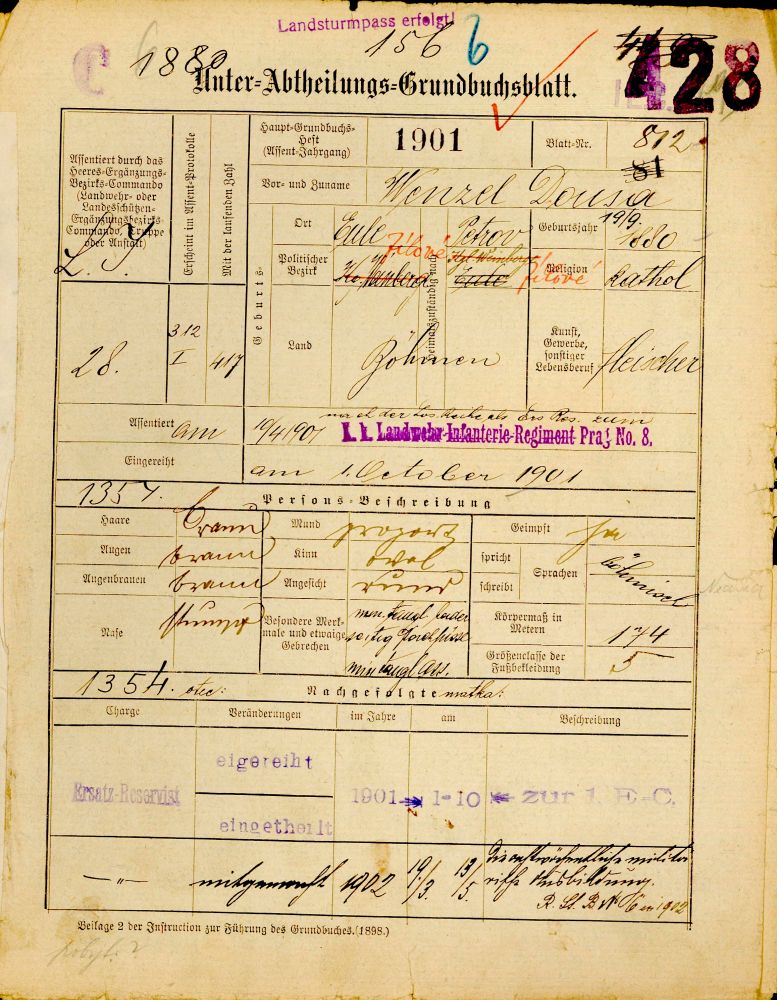 Landsturmpass erfolgt!
1880
156
6
428
Unter-Abtheilungs-Grundbuchsblatt.
Assentiert durch das Heeres-Ergänzungs-Bezirks-Commando (Landwehr- oder Landesschützen-Ergänzungsbezirks-Commando, Truppe oder Anstalt)
Erscheint im Assent-Protokolle
Mit der laufenden Zahl
Haupt-Grundbuchs-Heft (Assent-Jahrgang)
1901
Blatt-Nr.
812
81
Vor- und Zuname
Wenzel Dousa
Geburts-
Ort
Eule
heimatszuständig nach
Petrov
Geburtsjahr
19/9. 1880
Politischer Bezirk
Jílové
Kgl. Weinberge
Eule
Jílové
Religion
Kathol
Land
Böhmen
Kunst, Gewerbe, sonstiger Lebensberuf
Fleischer
28.
312
I
417
Assentiert
am
10/4 1901
nach der Losreihe als Ers Res. zum
k. k. Landwehr-Infanterie-Regiment Prag No. 8.
Eingereiht
am 1. October 1901
1357.
Persons-Beschreibung
Haare
braun
Mund
proport
Geimpft
Ja
Augen
braun
Kinn
oval
spricht
schreibt
Sprachen
böhmisch
Augenbrauen
braun
Angesicht
rund
Nase
stumpf
Besondere Merkmale und etwaige Gebrechen
Körpermaß in Metern
174
Größenclasse der Fußbekleidung
5
1354. otec:
Nachgefolgte
matka:
Charge
Veränderungen
im Jahre
am
Beschreibung
Ersatz-Reservist
eigereiht
eingetheilt
1901 1-10 zur 1. E-C.
—„—
mitgemacht
1902
19/3.
13/5.
die achtwöchentliche militärische Ausbildung.
Beilage 2 der Instruction zur Führung des Grundbuches. (1898.)